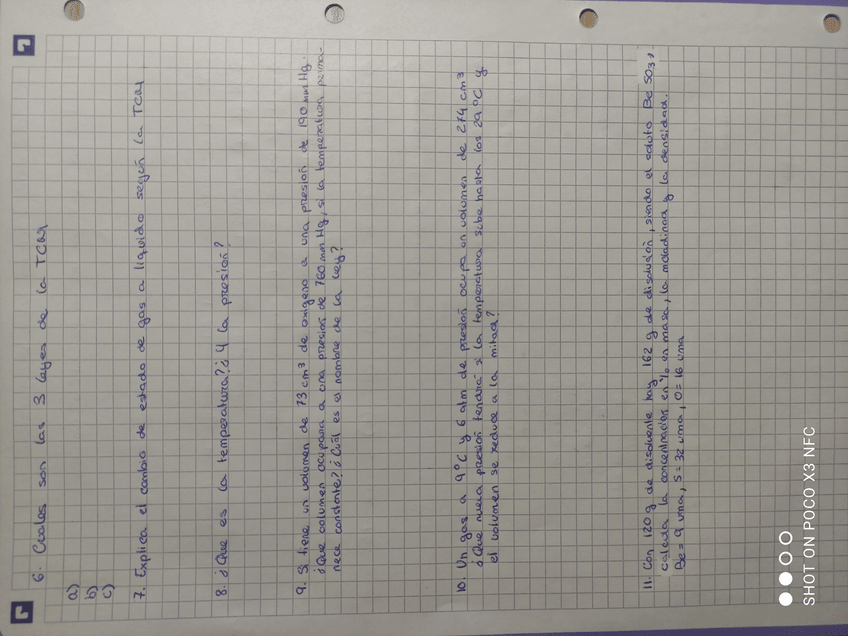 6. Cuales son las 3 leyes de la TCM
a)
b)
c)
7. Explica el cambio de estado de gas a liquido según la TCM
8. ¿Que es la temperatura? ¿Y la presion?
9. Si tiene un volumen de 73 cm³ de oxigeno a una presion de 190 mm Hg.
¿Que volumen ocupara a una presion de 760 mm Hg, si la temperatura perma-
nece constante? ¿Cuál es el nombre de la ley?
10. Un gas a 9°C y 6 atm de presion ocupa un volumen de 274 cm³
¿Que nueva presion tendrá si la temperatura sube hasta los 29°C y
el volumen se reduce a la mitad?
11. Con 120 g de disolvente hay 162 g de disolucion, siendo el soluto Be SO₃,
calcula la concentracion en % en masa, la molaridad y la densidad.
Be = 9 uma, S = 32 uma, O = 16 uma
SHOT ON POCO X3 NFC